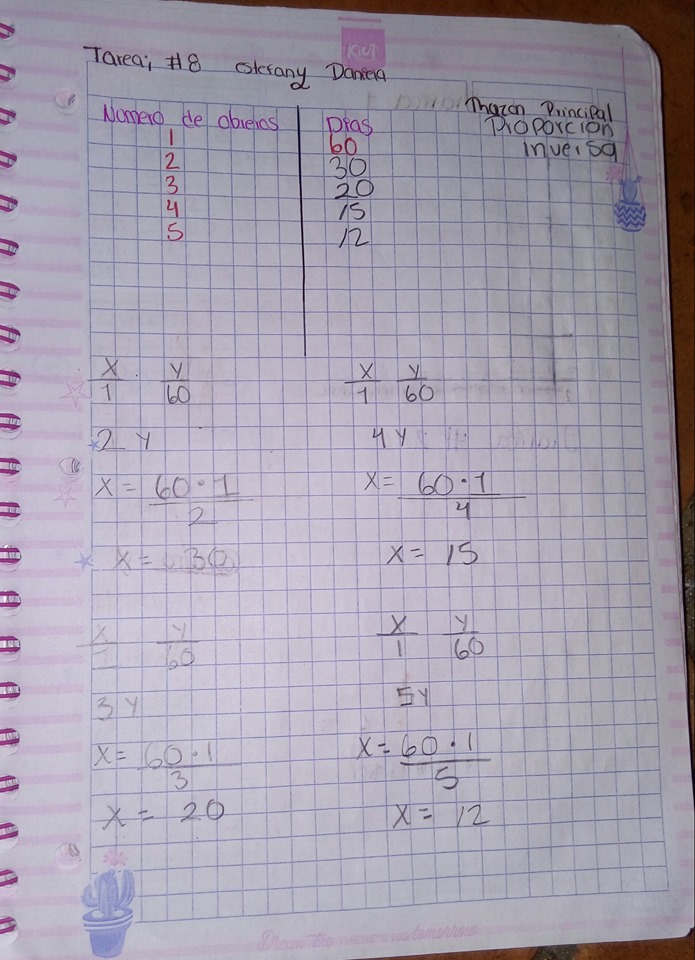 KIUT
Tarea; #8 estefany Daniera
Thazon Principal
Proporcion
inversa
Numero de obreros Dias
1 60
2 30
3 20
4 15
5 12
X Y
1 60
2 Y
X = 60 · 1
2
X = 30
X Y
1 60
4 Y
X = 60 · 1
4
X = 15
X Y
1 60
3 Y
X = 60 · 1
3
X = 20
X Y
1 60
5 Y
X = 60 · 1
5
X = 12